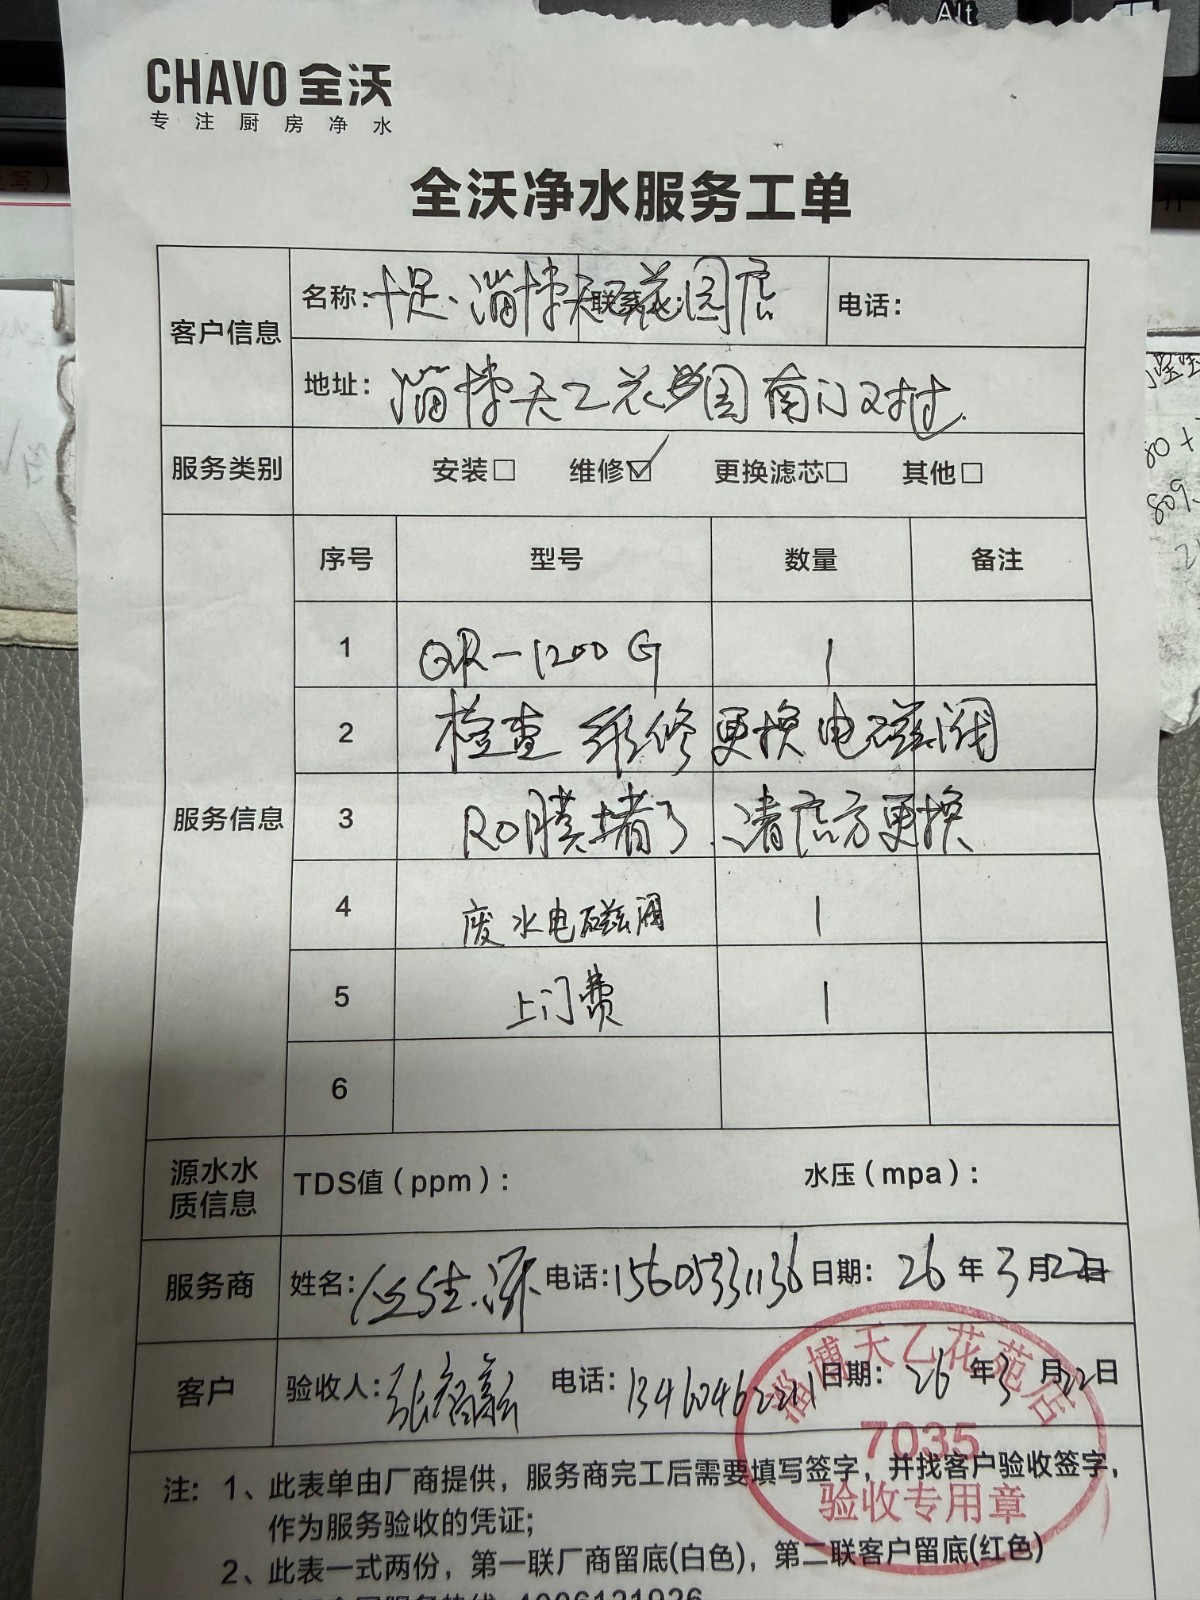 CHAVO 全沃
专注厨房净水
全沃净水服务工单
客户信息
名称:十足、淄博天乙花园店
联系人:
电话:
地址:淄博天乙花园南门对过.
服务类别 安装□ 维修☑ 更换滤芯□ 其他□
服务信息
序号 型号 数量 备注
1 QR-1200G 1
2 检查 维修更换电磁阀
3 RO膜堵了.请店方更换
4 废水电磁阀 1
5 上门费 1
6
源水水质信息 TDS值(ppm): 水压(mpa):
服务商 姓名: 电话:15605331136 日期: 26年3月22日
客户 验收人:张 电话:13460462211 日期: 26年3月22日
淄博天乙花苑店
7035
验收专用章
注: 1、此表单由厂商提供,服务商完工后需要填写签字,并找客户验收签字,
作为服务验收的凭证;
2、此表一式两份,第一联厂商留底(白色),第二联客户留底(红色)
4006131926
Alt